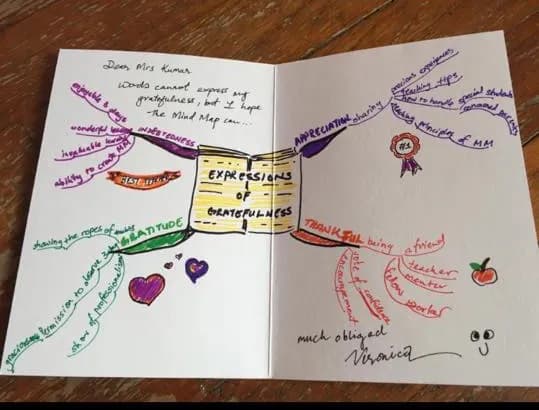 Dear Mrs Kumar
Words cannot express my
gratefulness, but I hope
the Mind Map can...
INDEBTEDNESS
enjoyable 3 days
wonderful
invaluable
ability to create MM
BEST
EXPRESSIONS
OF
GRATEFULNESS
GRATITUDE
showing the ropes of
permission to observe
show of professionalism
APPRECIATION
sharing
previous experiences
teaching tips
how to handle special students
concerned parents
principles of MM
#1
THANKFUL
being
a friend
teacher
mentor
fellow worker
vote of confidence
encouragement
much obliged
Veronica